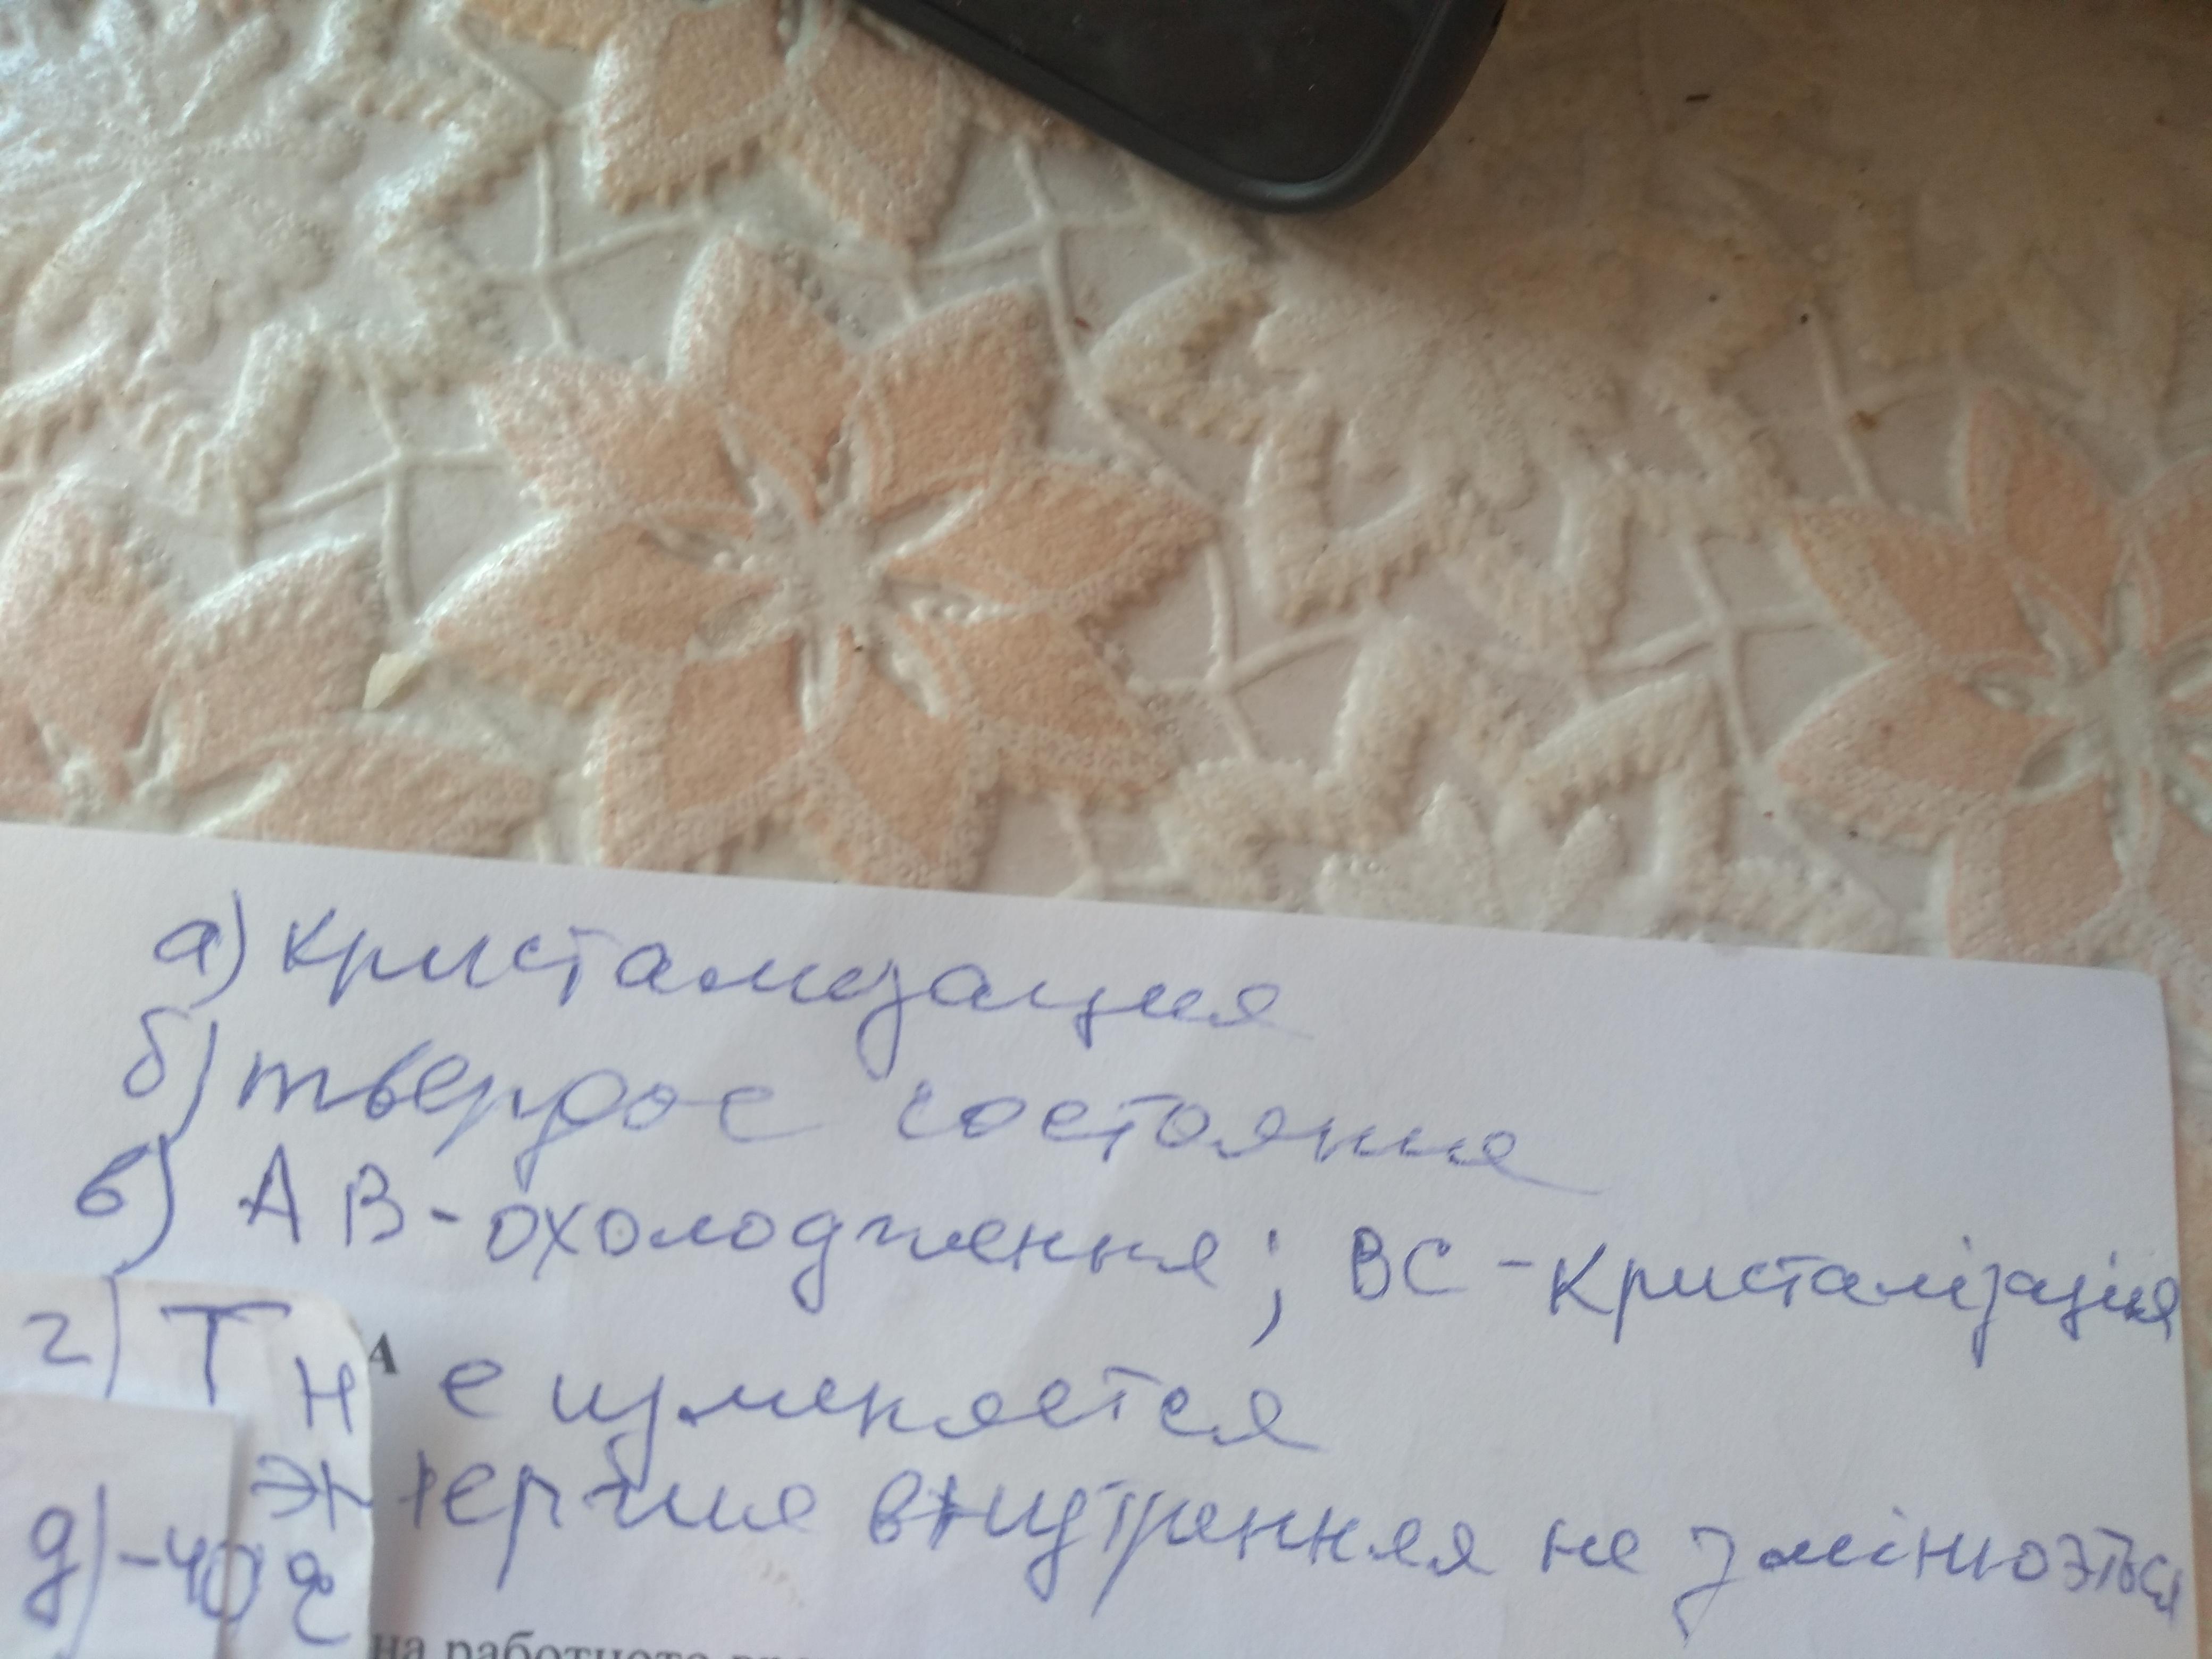 а) кристализация
б) твердое состояние
в) АВ - охолодження; ВС - Кристалізація
А
г) Т не изменяется
энергия внутренняя не змінюэться
д) -40
на работното